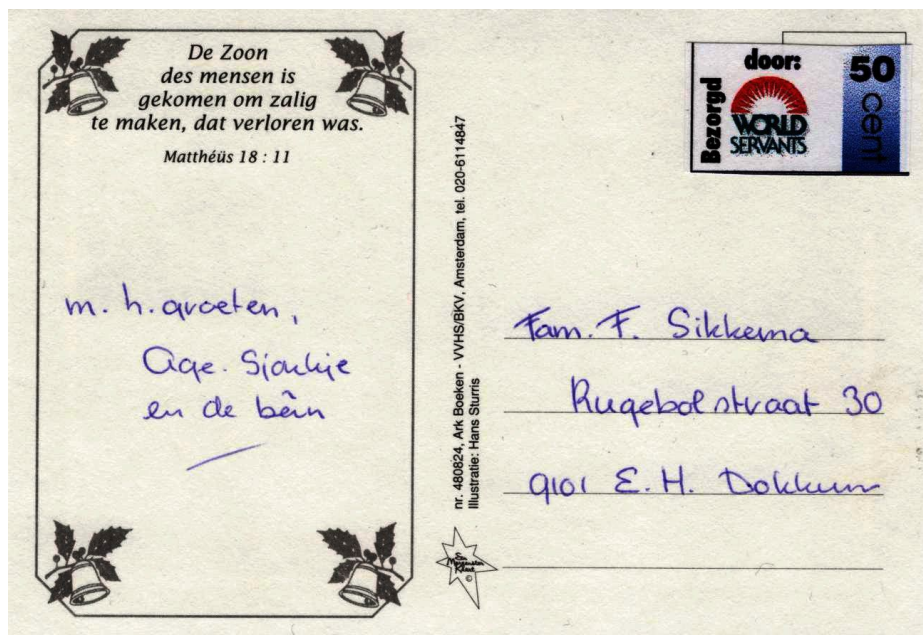 De Zoon
des mensen is
gekomen om zalig
te maken, dat verloren was.
Matthéüs 18 : 11
m. h. groeten,
Age. Sjoukje
en de bêrn
nr. 480824, Ark Boeken - VVHS/BKV, Amsterdam, tel. 020-6114847
Illustratie: Hans Sturris
Bezorgd
door:
WORLD
SERVANTS
50
cent
Fam. F. Sikkema
Rugebolstraat 30
9101 E.H. Dokkum